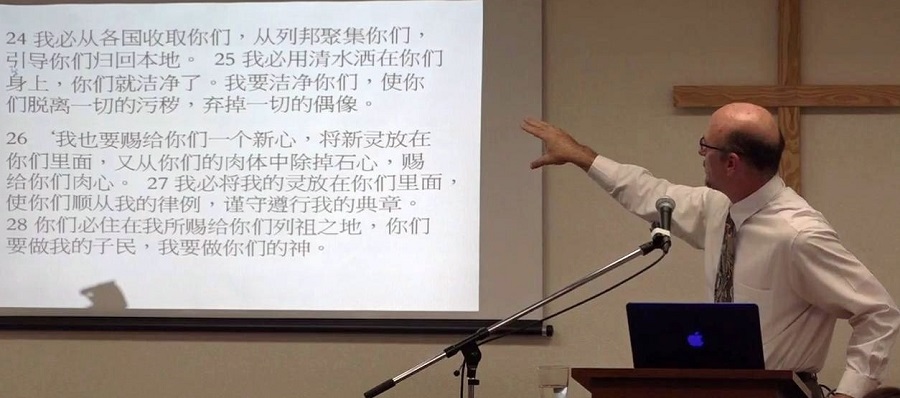 24 我必从各国收取你们，从列邦聚集你们，
引导你们归回本地。 25 我必用清水洒在你们
身上，你们就洁净了。我要洁净你们，使你
们脱离一切的污秽，弃掉一切的偶像。
26 ‘我也要赐给你们一个新心，将新灵放在
你们里面，又从你们的肉体中除掉石心，赐
给你们肉心。 27 我必将我的灵放在你们里面，
使你们顺从我的律例，谨守遵行我的典章。
28 你们必住在我所赐给你们列祖之地，你们
要做我的子民，我要做你们的神。